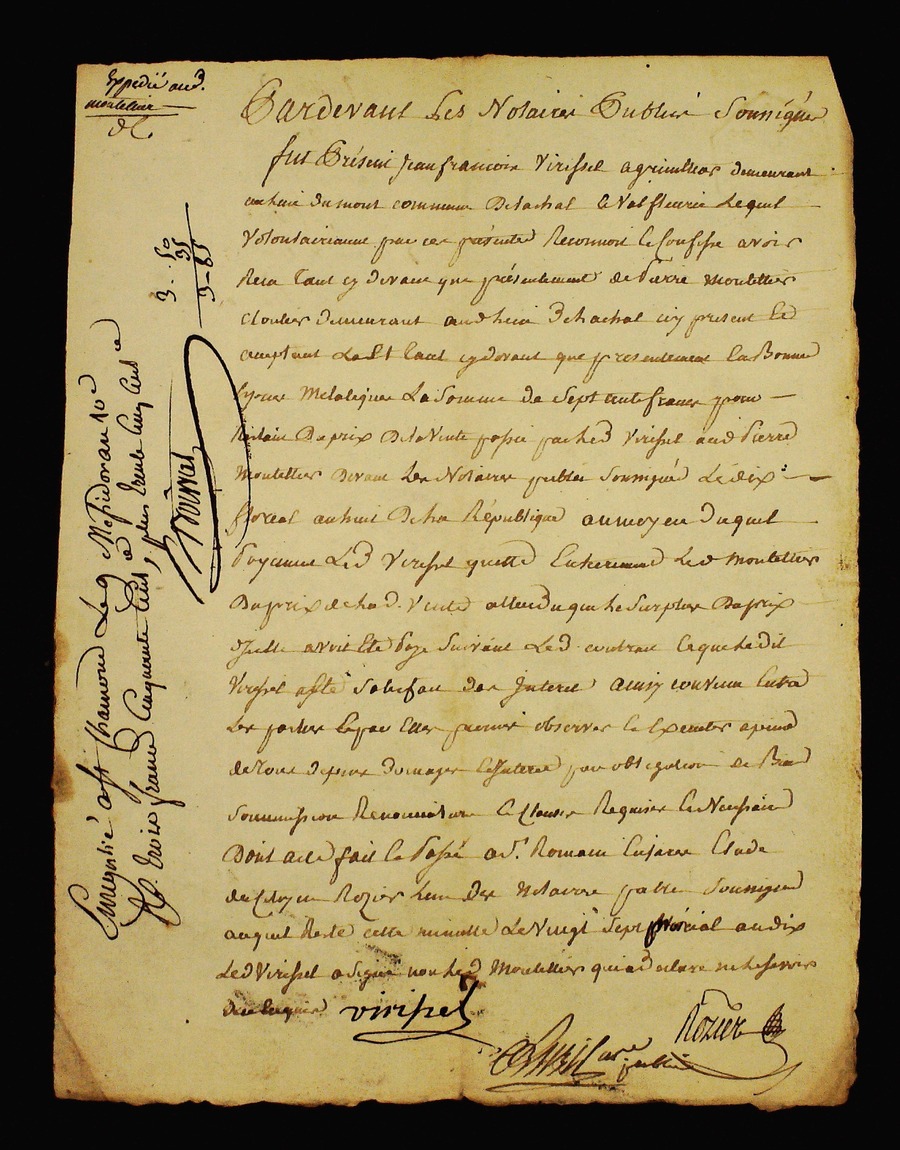 Expedié aud.
montelier
Pardevant Les Notaires Publics Soussignés
fut Présent Jean francois Virissel agriculteur demeurant
au lieu dumont commune De la Valfleurie Lequel
Volontairement par ces présentes Reconnoit & Confesse avoir
Recu tant cy devant que présentement de Pierre Montellier
Cloutier Demeurant aud. lieu icy present Et
acceptant tant cydevant que presentement En Bonne
La Somme De Sept cents francs pour
Du prix De la Vente passée par led Virissel aud Pierre
Montellier Devant Les Notaires publics Soussignés Le dix
floreal an huit De la République aumoyen Duquel
Payement Led Virissel quitte Entierement Led Montellier
Du prix de lad. Vente attendu que le Surplus Du prix
avoit Eté Payé Suivant Led contrat Et que Ledit
Virissel a été Satisfait des Interets ainsy convenu Entre
Les parties
de tous depens Domages & Interets par obligation de Biens
Soumission Renonciation & Clauses Requises & Necessaires
Dont acte fait & Passé a St. Romain En Jarez Etude
du Citoyen Rozier L'un Des Notaires Soussignés
auquel Reste cette minutte Le Vingt Sept prairial an dix
Led Virissel a Signé non Led Montellier qui a declaré ne le Savoir
De ce Enquis virissel
Rozier
public
Enregistré a St Chamond Le 9 Messidor an 10
Rç. trois francs Cinquante Cent. plus trente cinq Cent.
3 - 50
35
3 - 85